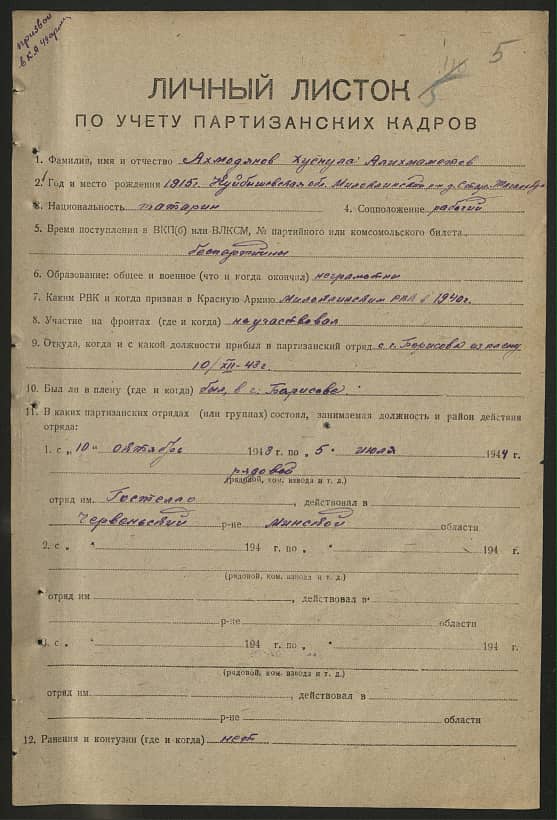 призван
в К.А
5
ЛИЧНЫЙ ЛИСТОК
ПО УЧЕТУ ПАРТИЗАНСКИХ КАДРОВ
1. Фамилия, имя и отчество Ахмадянов Хуснула Алихматов
2. Год и место рождения 1915г. Куйбышевская обл.
3. Национальность татарин 4. Соцположение рабочий
5. Время поступления в ВКП(б) или ВЛКСМ, № партийного или комсомольского билета
беспартийный
6. Образование: общее и военное (что и когда окончил) неграмотны
7. Каким РВК и когда призван в Красную Армию РВК в 1940г.
8. Участие на фронтах (где и когда) не участвовал
9. Откуда, когда и с какой должности прибыл в партизанский отряд с г. Борисова из плену
10/XII-43г.
10. Был ли в плену (где и когда) был, в г. Барисове
11. В каких партизанских отрядах (или группах) состоял, занимаемая должность и район действия
отряда:
1. с „10“ октябрь 1943 г. по „5“ июля 1944 г.
рядовой
(рядовой, ком. взвода и т. д.)
отряд им. Гостелло, действовал в
Червеньский р-не Минской области
2. с „ “ 194 г. по „ “ 194 г.
(рядовой, ком. взвода и т. д.)
отряд им , действовал в
р-не области
3. с „ “ 194 г. по „ “ 194 г.
(рядовой, ком. взвода и т. д.)
отряд им. , действовал в
р-не области
12. Ранения и контузии (где и когда) нет